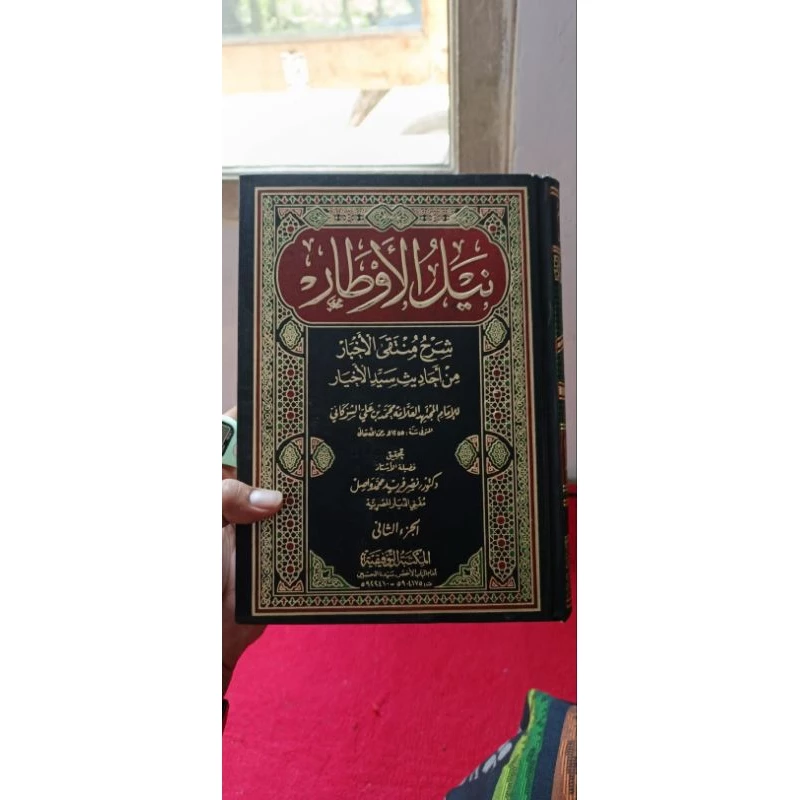 نَيْلُ الأَوْطَارِ
شَرْحُ مُنْتَقَى الأَخْبَارِ
مِنْ أَحَادِيثِ سَيِّدِ الأَخْيَارِ
للإمام المجتهد العلامة محمد بن علي الشوكاني
المتوفى سنة ١٢٥٥هـ
تحقيق
فضيلة الأستاذ
دكتور نصر فريد محمد واصل
مفتي الديار المصرية
الجزء الثاني
المكتبة التوفيقية
أمام الباب الأخضر سيدنا الحسين
٥٩٠٤١٧٥ - ٥٩٢٢٤١٠